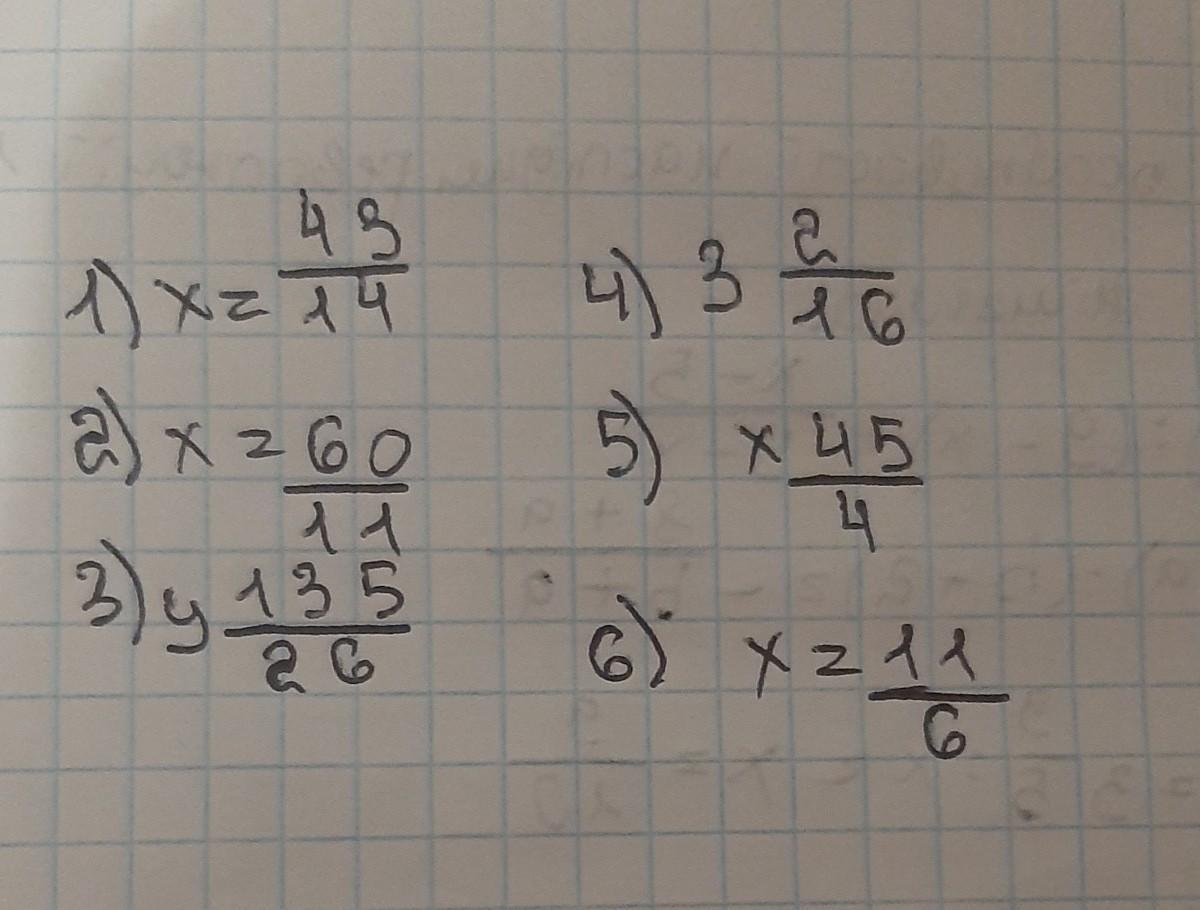 1) x = 43/14
2) x = 60/11
3) y 135/26
4) 3 2/16
5) x 45/4
6) x = 11/6